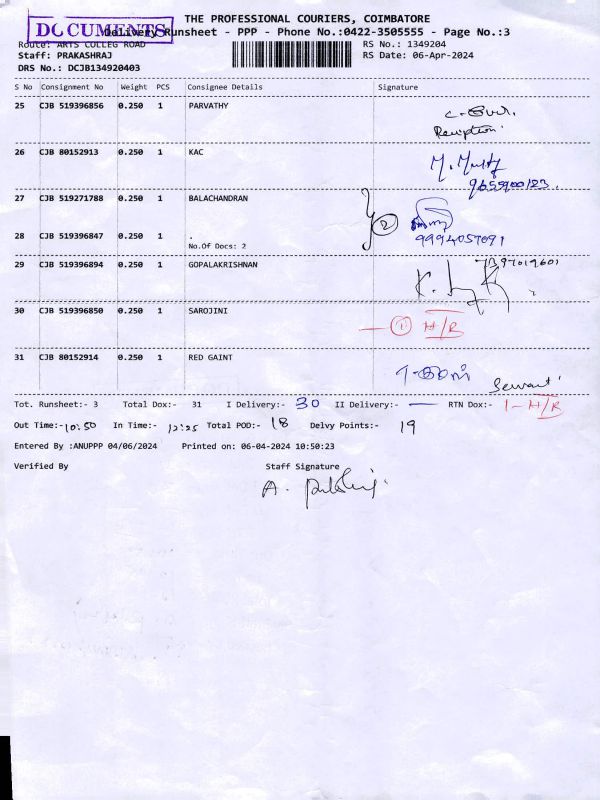 THE PROFESSIONAL COURIERS, COIMBATORE
DOCUMENTS
Delivery Runsheet - PPP - Phone No.:0422-3505555 - Page No.:3
Route: ARTS COLLEG ROAD RS No.: 1349204
Staff: PRAKASHRAJ RS Date: 06-Apr-2024
DRS No.: DCJB134920403
S No Consignment No Weight PCS Consignee Details Signature
25 CJB 519396856 0.250 1 PARVATHY
Reception
26 CJB 80152913 0.250 1 KAC
9655900123
27 CJB 519271788 0.250 1 BALACHANDRAN
2
28 CJB 519396847 0.250 1 .
No.Of Docs: 2
9994057091
29 CJB 519396894 0.250 1 GOPALAKRISHNAN
30 CJB 519396850 0.250 1 SAROJINI
— 1 H/R
31 CJB 80152914 0.250 1 RED GAINT
Servant
Tot. Runsheet:- 3 Total Dox:- 31 I Delivery:- 30 II Delivery:- — RTN Dox:- 1-H/R
Out Time:- 10:50 In Time:- 12:25 Total POD:- 18 Delvy Points:- 19
Entered By :ANUPPP 04/06/2024 Printed on: 06-04-2024 10:50:23
Verified By Staff Signature